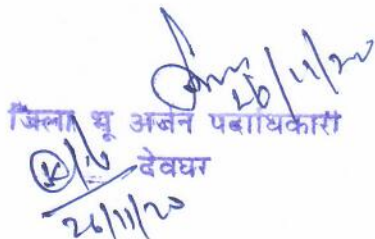 26/11/20
जिला भू अर्जन पदाधिकारी
देवघर
26/11/20